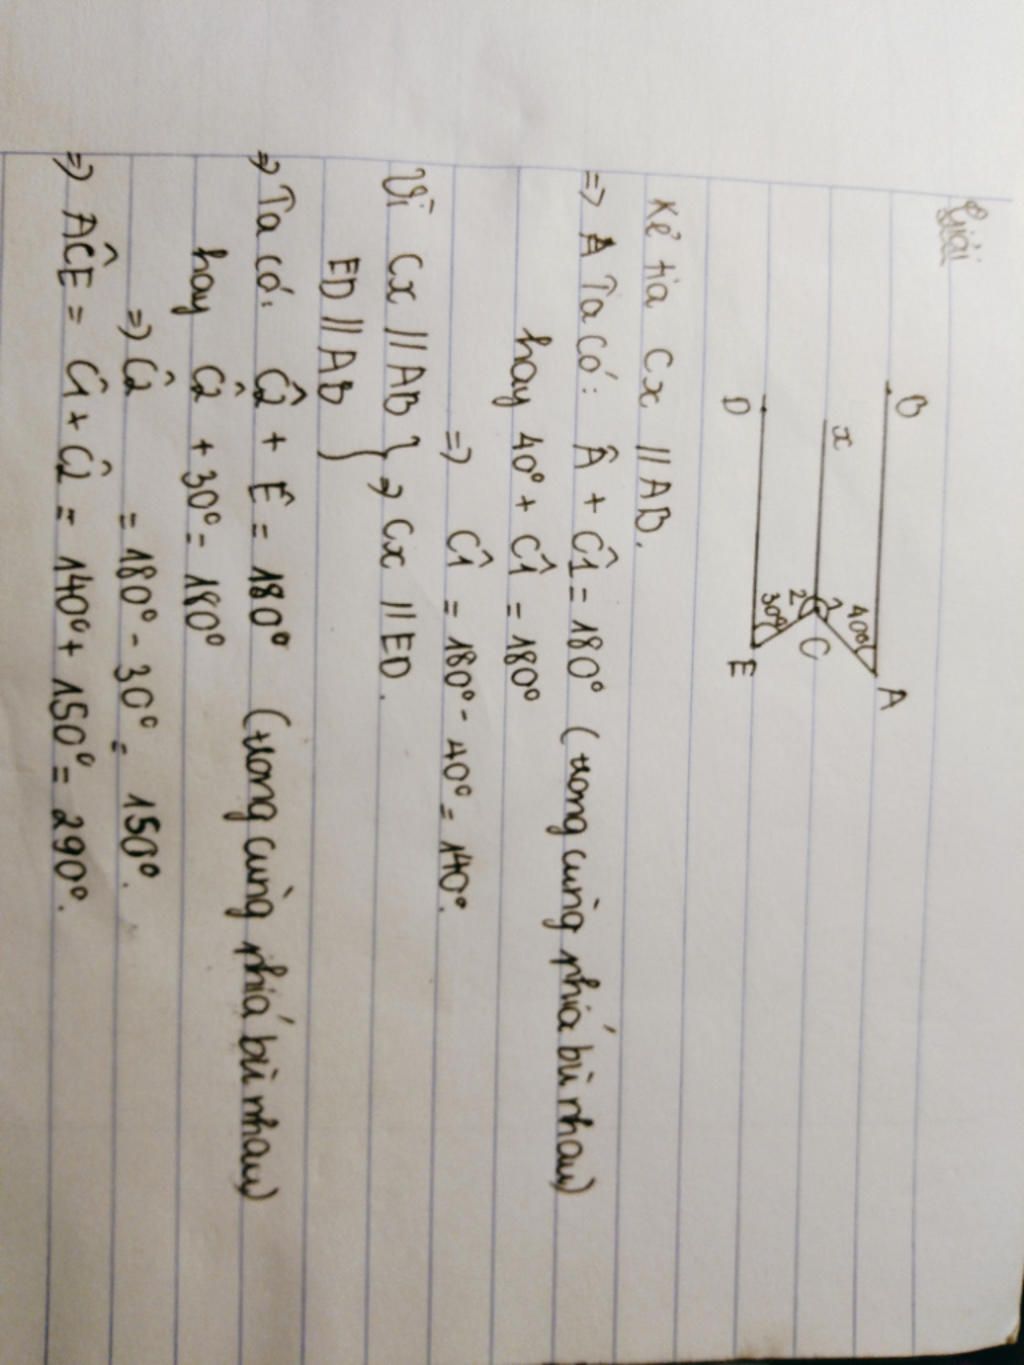 Giải
B
A
40°
x
1
C
2
30°
D
E
Kẻ tia Cx // AB.
=> Ta có: Â + Ĉ1 = 180° (trong cùng phiá bù nhau)
hay 40° + Ĉ1 = 180°
=> Ĉ1 = 180° - 40° = 140°.
Vì Cx // AB } => Cx // ED.
ED // AB
=> Ta có: Ĉ2 + Ê = 180° (trong cùng phiá bù nhau)
hay Ĉ2 + 30° = 180°
=> Ĉ2 = 180° - 30° = 150°.
=> AĈE = Ĉ1 + Ĉ2 = 140° + 150° = 290°.